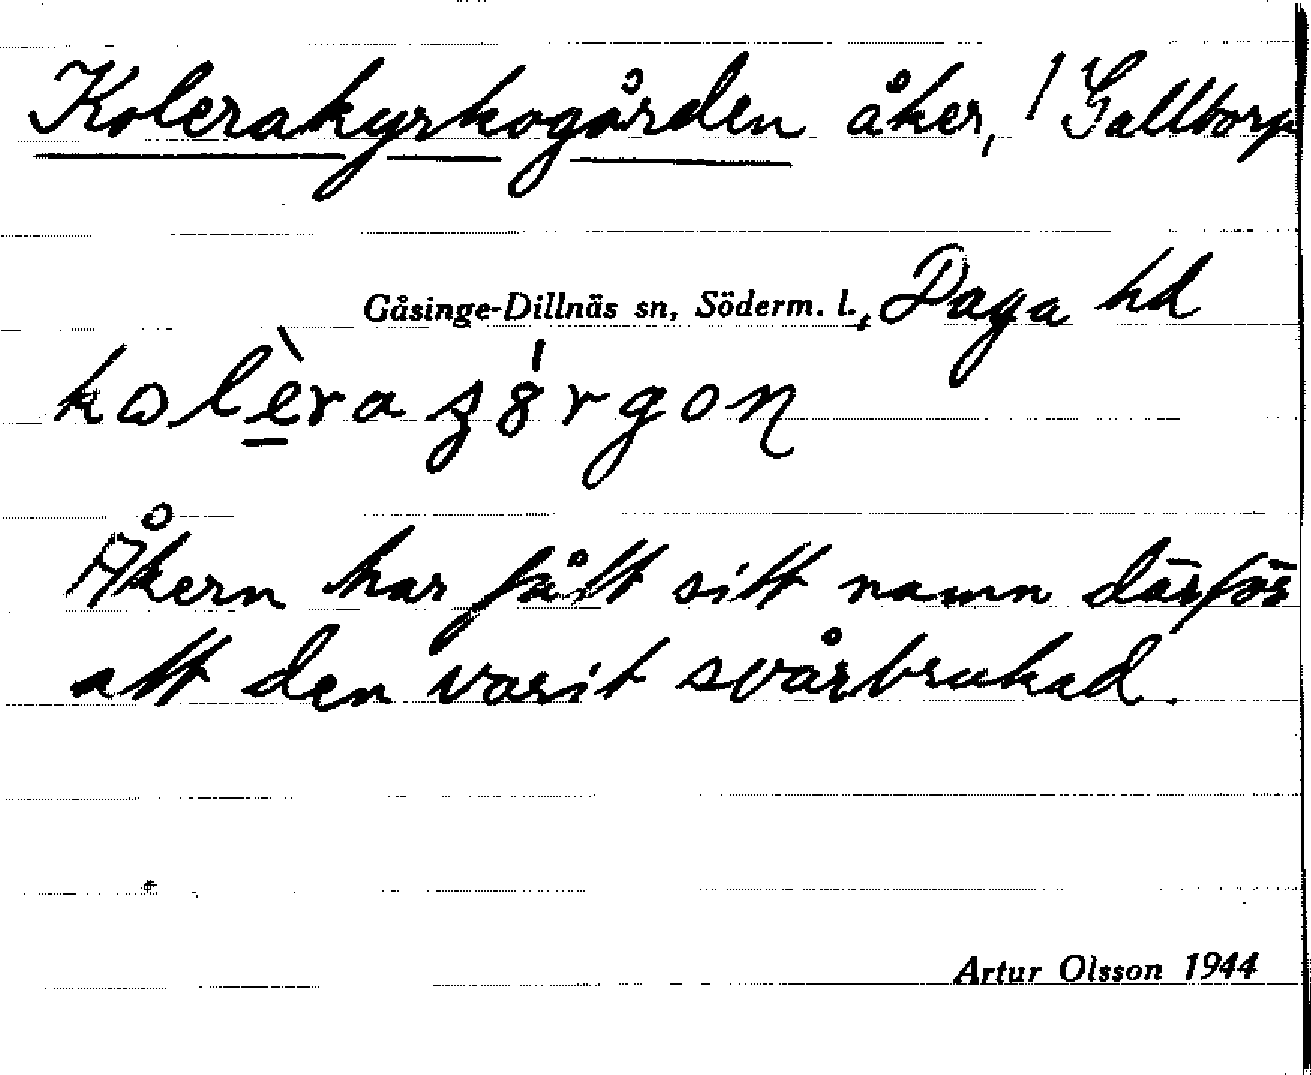 Kolerakyrkogården åker, / Galltorp
Gåsinge-Dillnäs sn, Söderm. l., Daga hd
kolèra
Åkern har fått sitt namn därför
att den varit svårbrukad.
Artur Olsson 1944